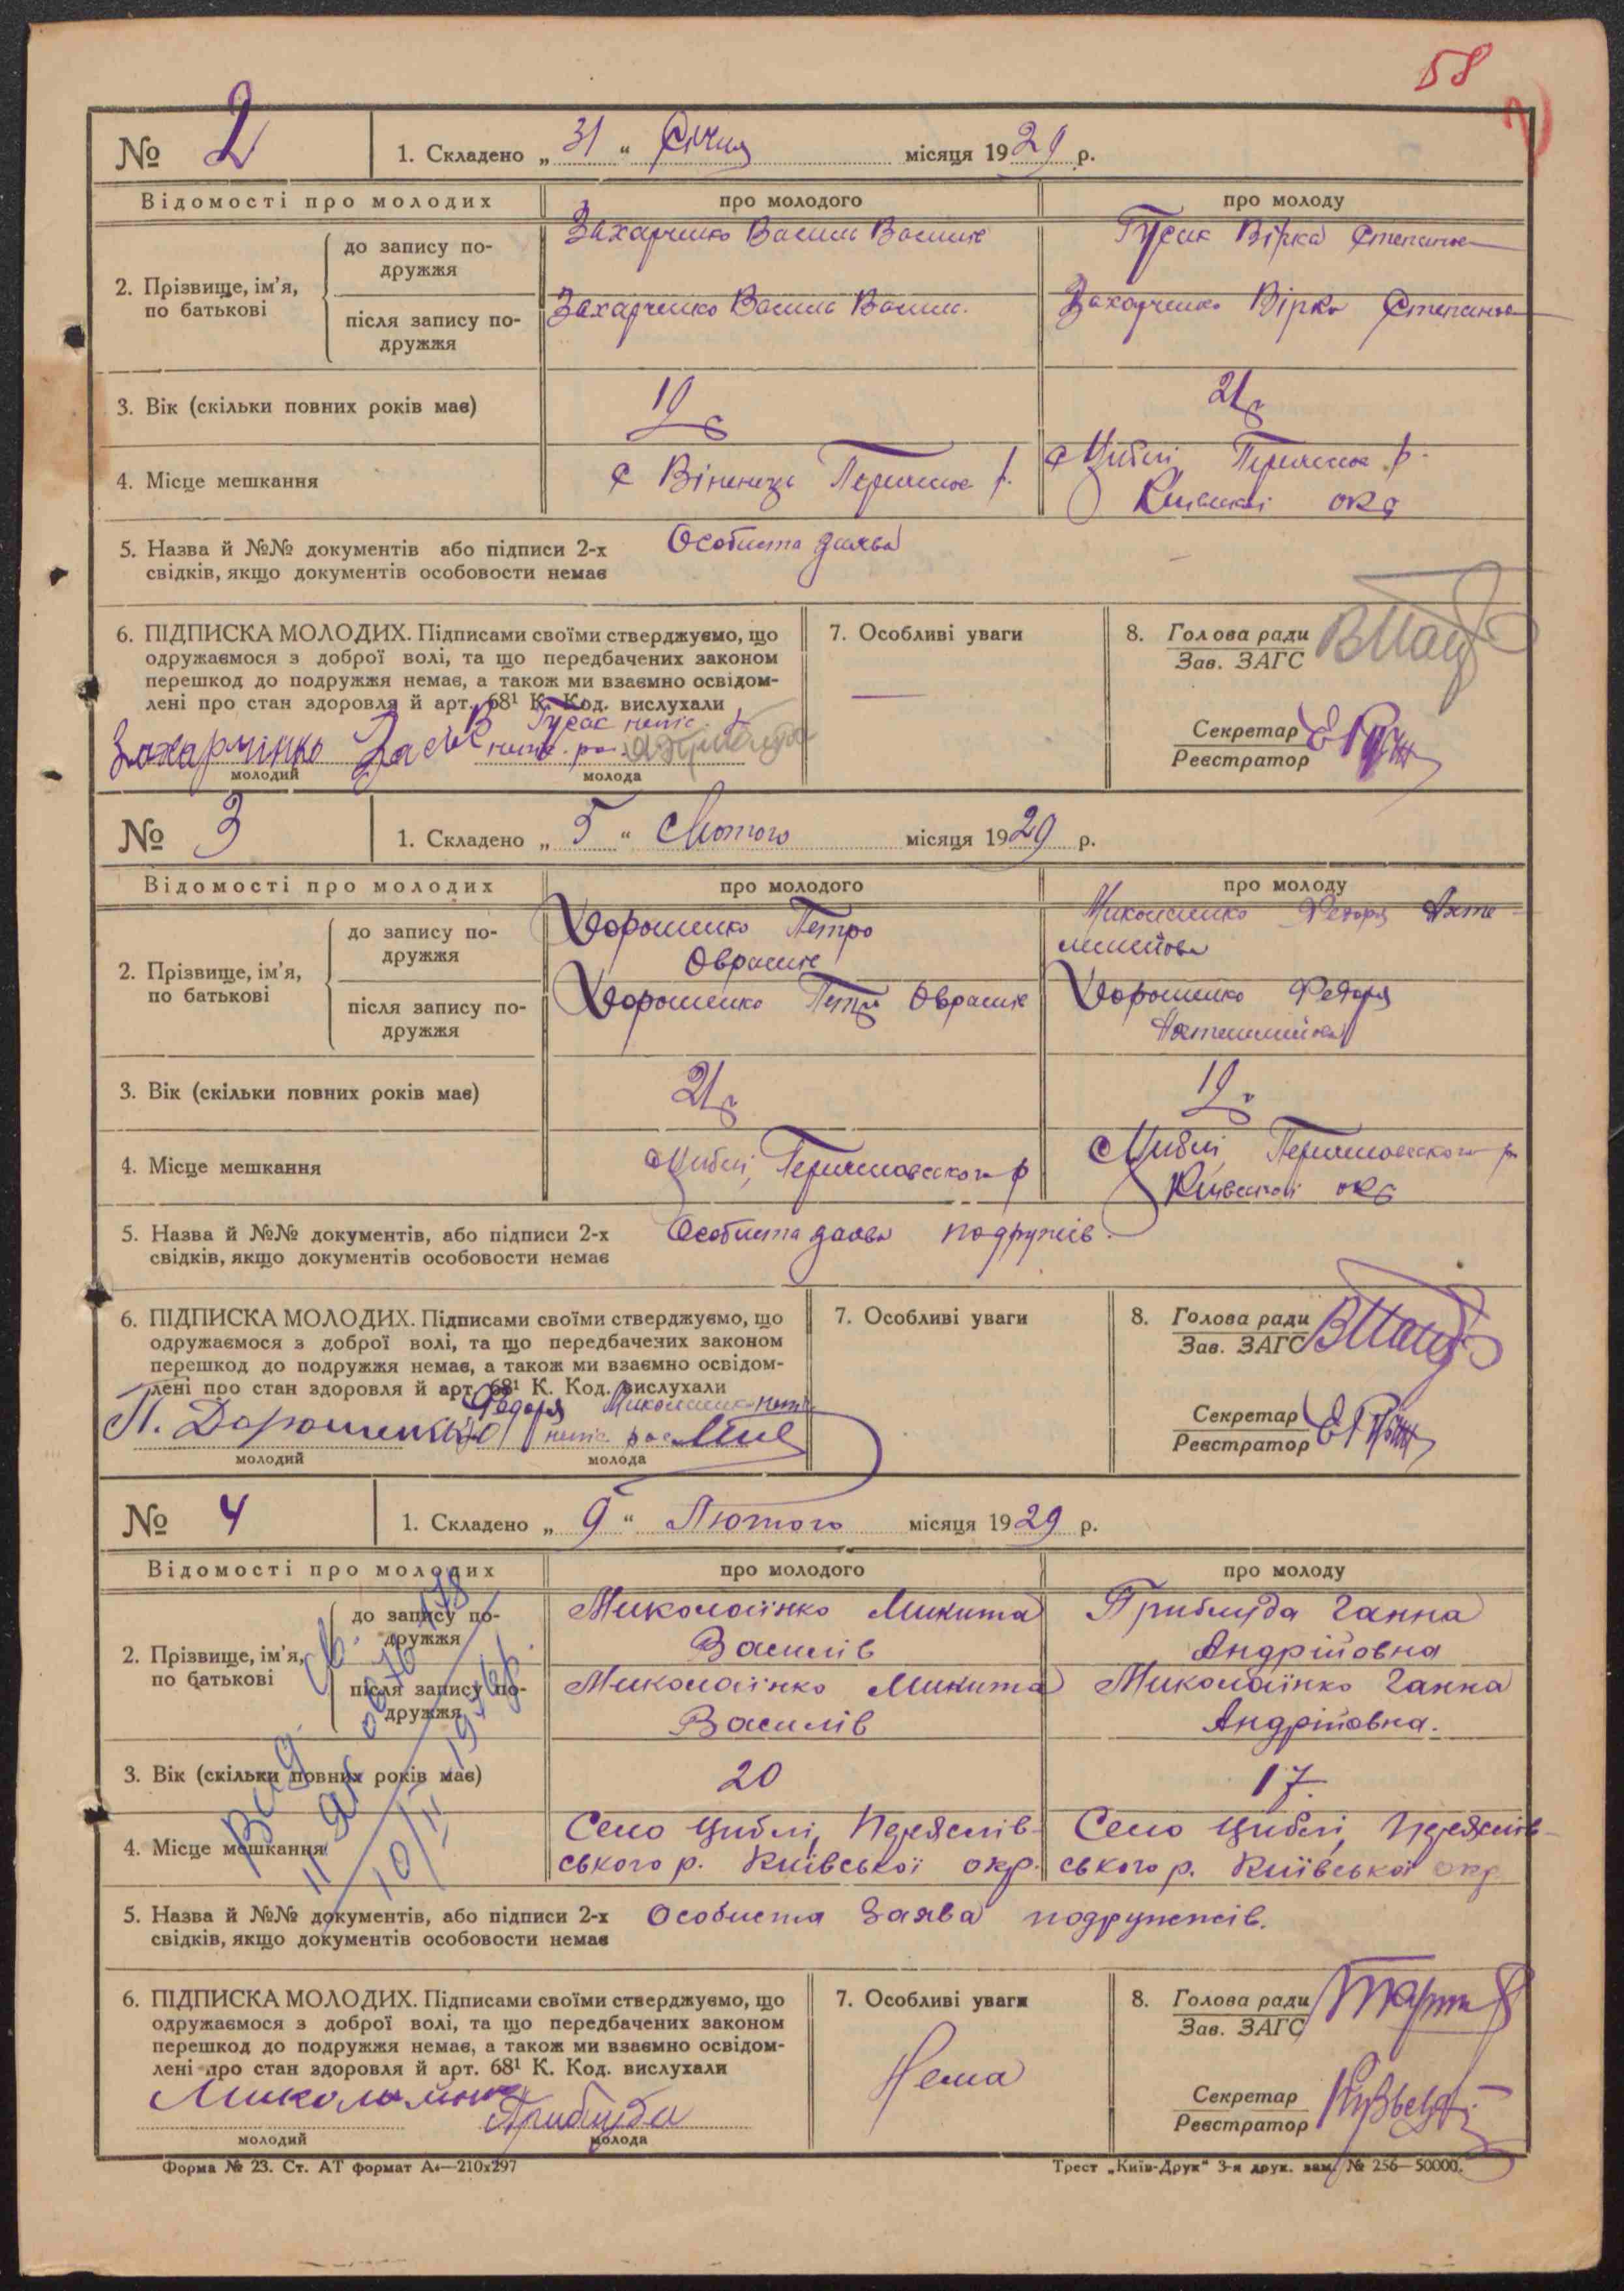 58
№ 2 1. Складено „ 31 “ Січня місяця 1929 р.
Відомості про молодих про молодого про молоду
2. Прізвище, ім’я, по батькові
до запису подружжя Захарченко Василь Василів Гусак Вірка Степанов
після запису подружжя Захарченко Василь Васил. Захарченко Вірка Степанов
3. Вік (скільки повних років має) 19 21
4. Місце мешкання с Віненці р. с Циблі р.
Київської окр
5. Назва й №№ документів або підписи 2-х Особиста заява
свідків, якщо документів особовости немає
6. ПІДПИСКА МОЛОДИХ. Підписами своїми стверджуємо, що 7. Особливі уваги 8. Голова ради
одружаємося з доброї волі, та що передбачених законом Зав. ЗАГС
перешкод до подружжя немає, а також ми взаємно освідом-
лені про стан здоровля й арт. 68¹ К. Код. вислухали Секретар
Гусак Реєстратор
Захарчінко
молодий молода
№ 3 1. Складено „ 5 “ Лютого місяця 1929 р.
Відомості про молодих про молодого про молоду
2. Прізвище, ім’я, по батькові
до запису подружжя Дорошенко Петро Федоря
після запису подружжя Дорошенко Петро Дорошенко Федоря
3. Вік (скільки повних років має) 21 19
4. Місце мешкання Циблі, р с Циблі р
Київської окр
5. Назва й №№ документів, або підписи 2-х Особиста заява подружжів.
свідків, якщо документів особовости немає
6. ПІДПИСКА МОЛОДИХ. Підписами своїми стверджуємо, що 7. Особливі уваги 8. Голова ради
одружаємося з доброї волі, та що передбачених законом Зав. ЗАГС
перешкод до подружжя немає, а також ми взаємно освідом-
лені про стан здоровля й арт. 68¹ К. Код. вислухали Секретар
Федоря Реєстратор
П. Дорошенко
молодий молода
№ 4 1. Складено „ 9 “ Лютого місяця 1929 р.
Відомості про молодих про молодого про молоду
2. Прізвище, ім’я, по батькові
до запису подружжя Миколаїнко Микита Приблуда Ганна
Василів Андрійовна
після запису подружжя Миколаїнко Микита Миколаїнко Ганна
Василів Андрійовна.
3. Вік (скільки повних років має) 20 17
4. Місце мешкання Село Циблі, Переяслів- Село Циблі, Переяслів-
ського р. Київської окр. ського р. Київської окр
5. Назва й №№ документів, або підписи 2-х Особиста Заява подружжів.
свідків, якщо документів особовости немає
6. ПІДПИСКА МОЛОДИХ. Підписами своїми стверджуємо, що 7. Особливі уваги 8. Голова ради
одружаємося з доброї волі, та що передбачених законом Зав. ЗАГС
перешкод до подружжя немає, а також ми взаємно освідом- Нема
лені про стан здоровля й арт. 68¹ К. Код. вислухали Секретар
Приблуда Реєстратор
молодий молода
Форма № 23. Ст. АТ формат А₄—210х297 Трест „Київ-Друк“ 3-я друк. зам. № 256—50000.